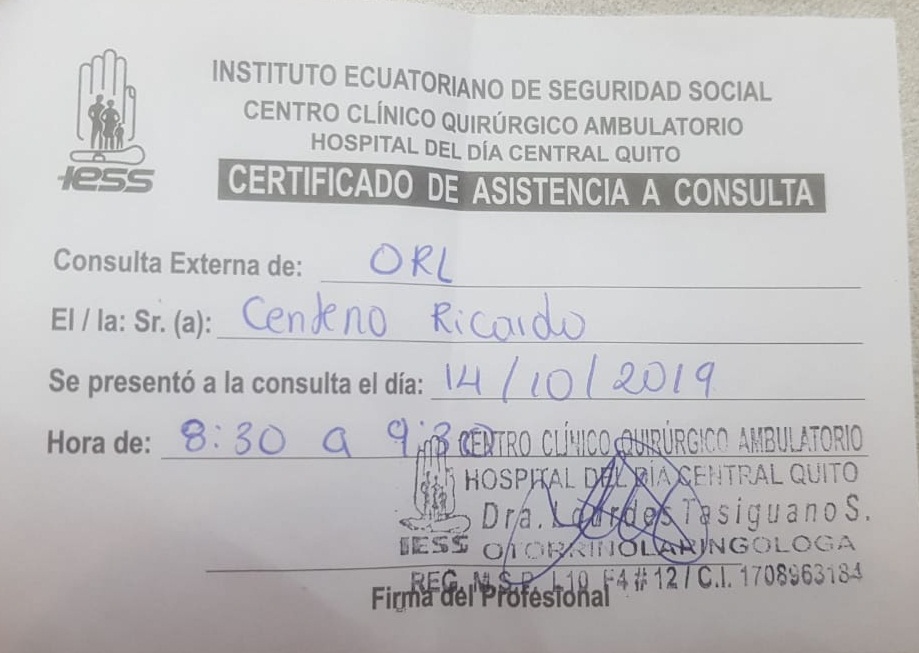 INSTITUTO ECUATORIANO DE SEGURIDAD SOCIAL
CENTRO CLÍNICO QUIRÚRGICO AMBULATORIO
HOSPITAL DEL DÍA CENTRAL QUITO
IESS
CERTIFICADO DE ASISTENCIA A CONSULTA
Consulta Externa de: ORL
El / la: Sr. (a): Centeno Ricardo
Se presentó a la consulta el día: 14/10/2019
Hora de: 8:30 a 9:30
CENTRO CLÍNICO QUIRÚRGICO AMBULATORIO
HOSPITAL DEL DÍA CENTRAL QUITO
Dra. Lourdes Tasiguano S.
IESS OTORRINOLARINGOLOGA
REG. M.S.P. L10 F4 # 12 / C.I. 1708963184
Firma del Profesional